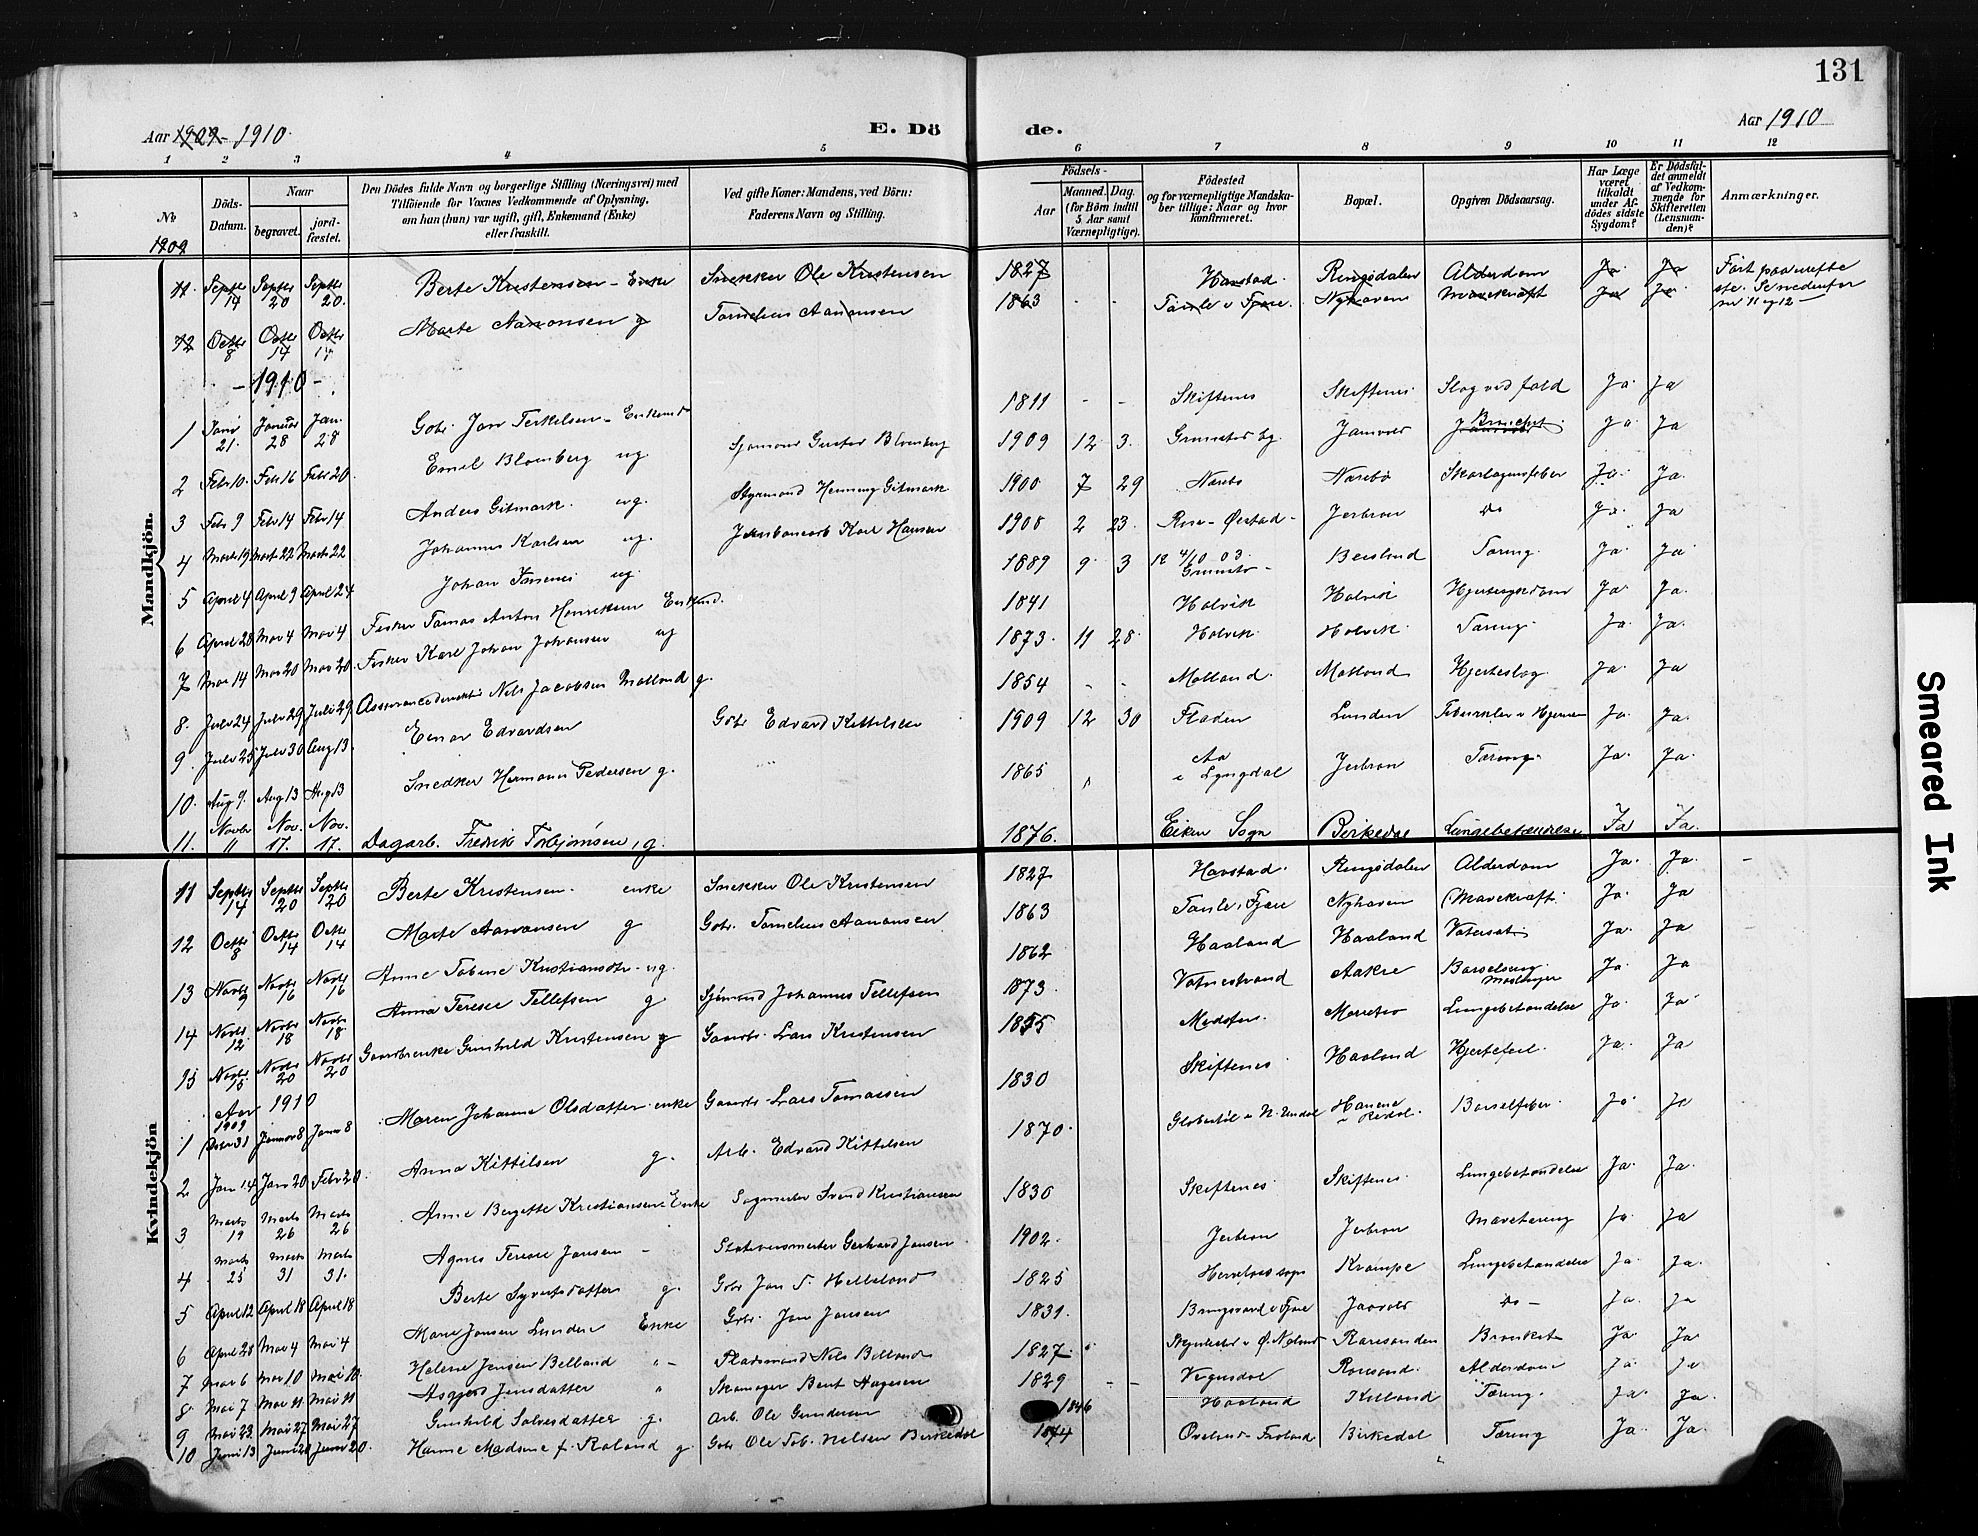 131
Aar 1909 - 1910.
E. Dö
de.
Aar 1910
1 2 3 4 5 6 7 8 9 10 11 12
No
Döds-
Datum.
Naar
begravet.
jord-
fæstet.
Den Dödes fulde Navn og borgerlige Stilling (Næringsvei) med
Tilföiende for Voxnes Vedkommende af Oplysning,
om han (hun) var ugift, gift, Enkemand (Enke)
eller fraskilt.
Ved gifte Koner: Mandens, ved Börn:
Faderens Navn og Stilling.
Födsels-
Aar
Maaned. Dag.
(for Börn indtil
5 Aar samt
Værnepligtige).
Födested
og for værnepligtige Mandska-
ber tillige: Naar og hvor
konfirmeret.
Bopæl.
Opgiven Dödsaarsag.
Har Læge
været
tilkaldt
under Af-
dödes sidste
Sygdom?
Er Dödsfal-
det anmeldt
af Vedkom-
mende for
Skifteretten
(Lensman-
den)?
Anmærkninger.
1909
Mandkjön.
11 Septbr 14 Septbr 20 Septbr 20. Berte Kristensen - Enke Snekker Ole Kristensen 1827 Havstad. Ringsdalen Alderdom Ja. Ja
12 Octbr 8 Octbr 14 Octbr 14 Marte Aanonsen g Tornelius Aanonsen 1863 - - Tanle i Fjære. Nyhaven Mavekræft Ja Ja.
nr 11 og 12 —
- 1910 -
1 Janr 21. Januar 28 Jan. 28 Gbr. Jan Terkelsen - Enkemd 1811 - - Skiftenes Skiftenes Slag ved fald Ja. Ja
2 Febr 10. Febr 16 Febr 20. Emil Blomberg ug Sjømand Gustav Blomberg 1909 12 3. Grimstad by. Ja Ja
3 Febr 9 Febr 14 Febr 14 Anders Gitmark. ug. Styrmand Henning Gitmark 1900 7 29 Nærebø Nærebø Skarlagensfeber Ja. Ja.
4 Marts 19 Marts 22 Marts 22 Johannes Karlsen ug. Jernbanearb Karl Hansen 1908 2 23. Jerbron do Ja. Ja
5 April 4 April 9 April 24 Johan ug. 1889 9. 3 12 4/10 03. Grimstad - Tæring. Ja. Ja
6 April 28 Mai 4 Mai 4 Fisker Tomas Anton Henriksen Enkemd. 1841 Holvik Holvik Hjertesygdom Ja. Ja.
7 Mai 14 Mai 20 Mai 20. Fisker Karl Johan Johansen ug 1873. 11 28. Holvik. Holvik. Tæring. Ja. Ja.
8. Juli 24 Juli 29 Juli 29 Nils Jacobsen Molland g. 1854 - - Molland. Molland Hjerteslag Ja. Ja
9 Juli 25 Juli 30 Aug 13. Einar Edvardsen Gbr Edvard Kittilsen 1909 12 30 Fladen Lunden Ja. Ja.
10. Aug 9. Aug 13 Aug 13 Snedker Hermann Pedersen g. 1865 Aa i Lyngdal Jerbron Tæring. Ja. Ja.
11. Novbr 11 Nov. 17. Nov. 17. Dagarb. Fredrik Torbjørnsen, g. 1876. Eiken Sogn Birkedal Lungebetændelse Ja Ja.
Kvindekjön
11 Septbr 14 Septbr 20 Septbr 20 Berte Kristensen. enke Snekker Ole Kristensen 1827 Havstad. Ringsdalen Alderdom Ja. Ja.
12 Octbr 8 Octbr 14 Octbr 14 Marte Aanonsen g Gbr. Tornelius Aanonsen 1863 Tanle i Fjære Nyhaven Mavekræft. Ja. Ja
13 Novbr 9 Novbr 16 Novbr 16 Anne Tobine Kristiansdtr. ug. 1862 Haaland Haaland Vatersot Ja. Ja
14 Novbr 12 Novbr 18 Novbr 18 Anna Terese Tellefsen g Sjømand Johannes Tellefsen 1873. Vatnestrand Aakre Ja. Ja
15 Novbr 15 Novbr 20 Novbr 20 Gaardbrenke Gunhild Kristensen g Gaardbr. Lars Kristensen 1855 Lungebetændelse Ja. Ja
Aar 1910
1909
1 Decbr 31 Januar 8 Januar 8 Maren Johanne Olsdatter. enke Gaardbr Lars Tomassen 1830 Skiftenes Haaland Hjertefeil. Ja. Ja
2 Jan 14 Jan 20 Febr 20. Anna Kittilsen g. Arb. Edvard Kittilsen 1870. Barselfeber. Ja. Ja
3 Marts 19 Marts 26 Marts 26 Anne Bergitte Kristiansen Enke Svend Kristiansen 1830 Skiftenes. Skiftenes. Lungebetændelse Ja. Ja.
4 Marts 25 Marts 31 Marts 31. Agnes Terese Jansen - Stationsmester Gerhard Jansen 1902. Jerbron Jerbron Mavetæring Ja. Ja
5 April 12 April 18 April 18 Berte Syvertsdatter g. Gbr Jan T. Helleland 1825 Krampe Lungebetændelse Ja. Ja.
6 April 28 Mai 4 Mai 4 Jansen Lunden Enke Gbr. Jan Jansen 1831. do - Ja. Ja
7 Mai 6 Mai 10 Mai 10. Helene Jensen Belland " - Pladsmand Nils Belland 1827. Roresanden Bronkit Ja. Ja.
8 Mai 7 Mai 11 Mai 11 Asgjerd Jensdatter " Skomager Bent Aagesen 1829 - - Vegusdal Roresand. Alderdom Ja. Ja
9 Mai 22 Mai 27 Mai 27 Gunhild Salvesdatter g. Arb. Ole Gundersen 1846 Haaland Tæring. Ja. Ja.
10 Juni 13 Juni 20 Juni 20. Hanne Madsine f. Roland g Gbr Ole Tob. Nilsen Birkedal 1874 Birkedal Tæring Ja. Ja.
Smeared Ink